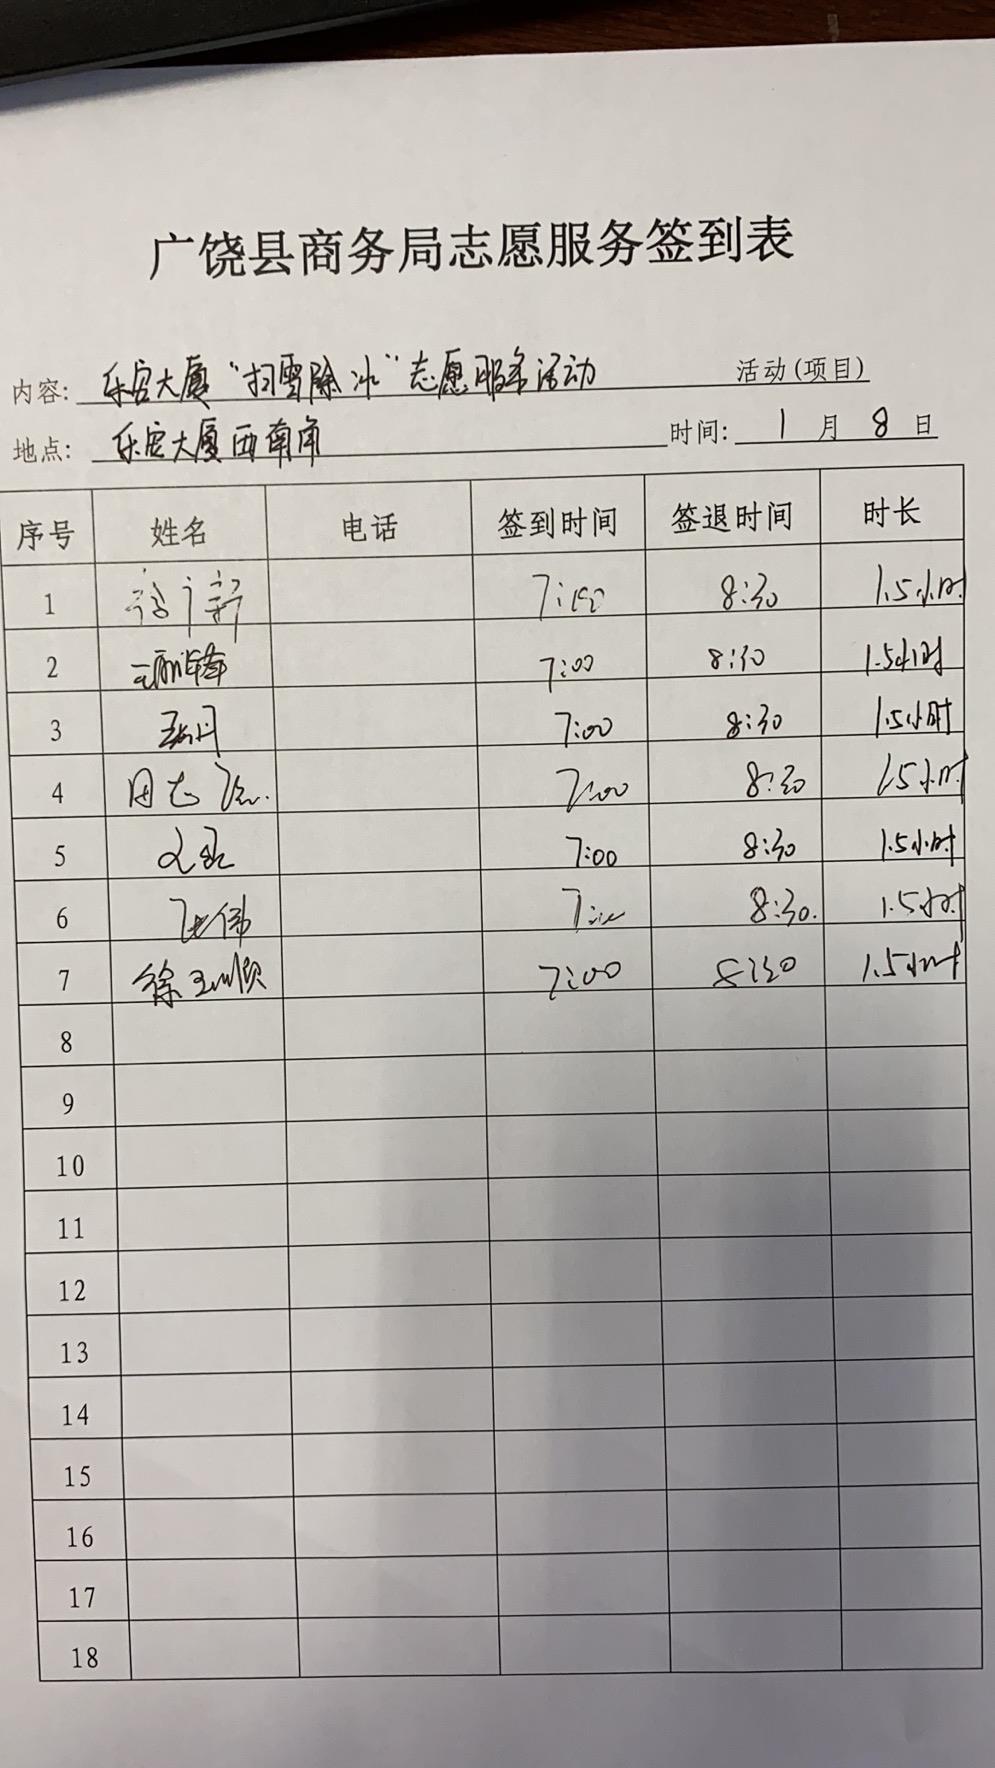 广饶县商务局志愿服务签到表
内容: 乐安大厦“扫雪除冰”志愿服务活动 活动(项目)
地点: 乐安大厦西南角 时间: 1月8日
序号 姓名 电话 签到时间 签退时间 时长
1 7:00 8:30 1.5小时
2 7:00 8:30 1.5小时
3 7:00 8:30 1.5小时
4 周志 7:00 8:30 1.5小时
5 7:00 8:30 1.5小时
6 张伟 7:00 8:30. 1.5小时
7 徐玉顺 7:00 8:30 1.5小时
8
9
10
11
12
13
14
15
16
17
18